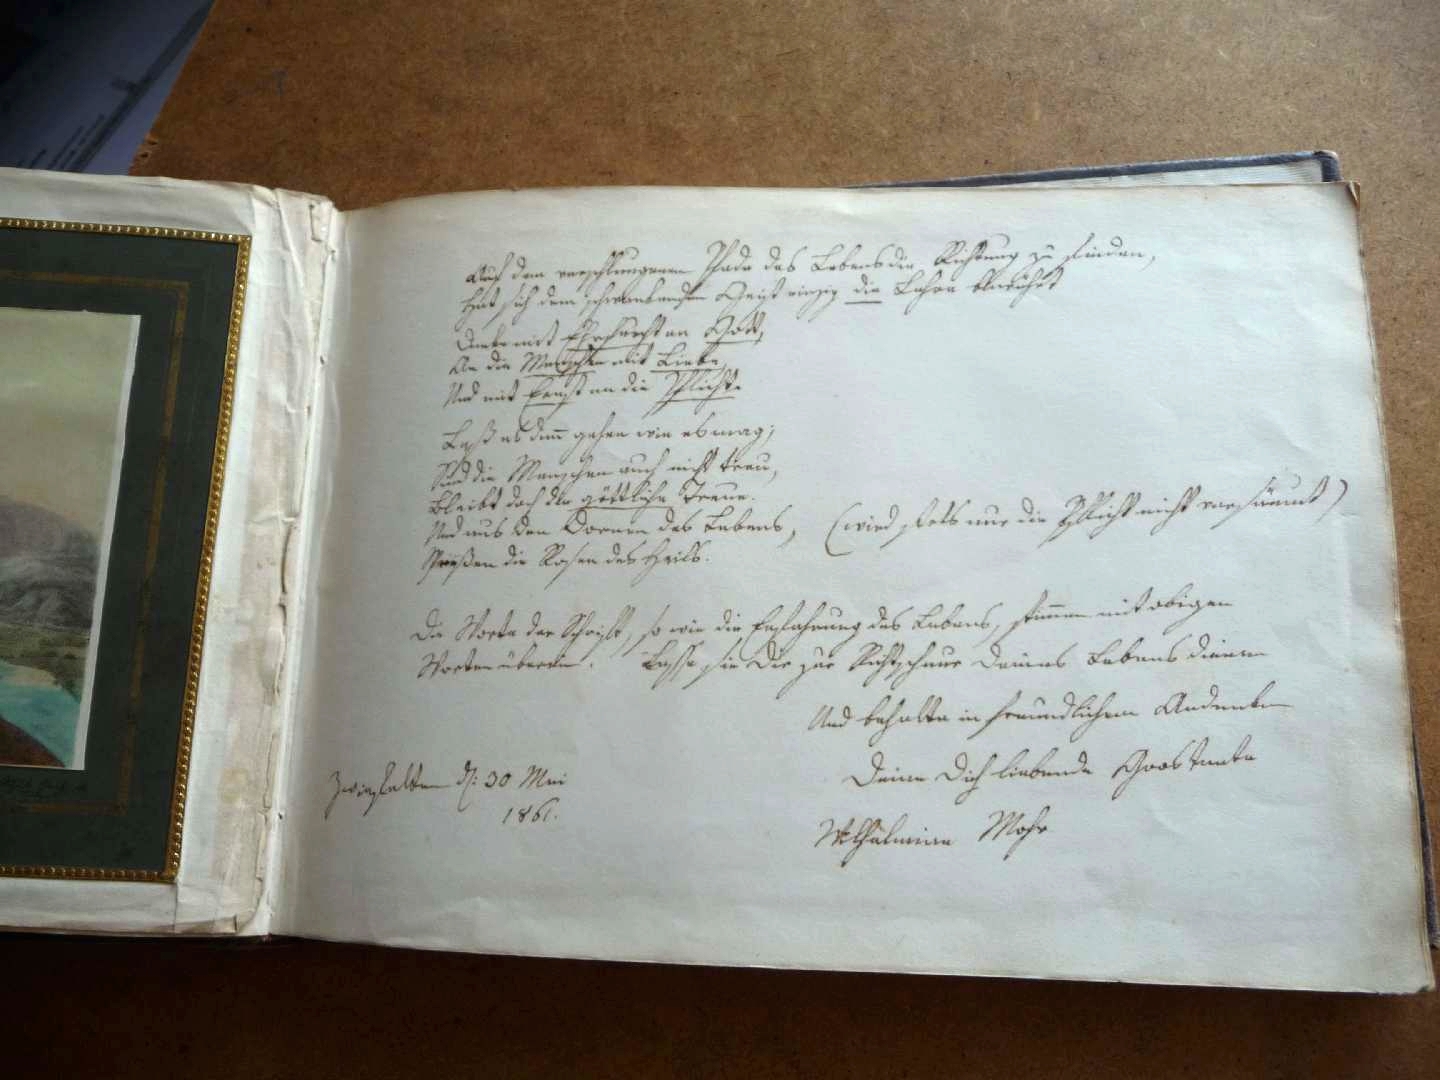 Auf dem verschlungenen Pfade des Lebens die Richtung zu finden,
Hat sich dem schwankenden Geist einzig die Lehre bewährt
Denke mit Ehrfurcht an Gott,
An die Menschen mit Liebe,
Und mit Ernst an die Pflicht.
Laß es dann gehen wie es mag;
Sind die Menschen auch nicht treu,
Bleibt doch die göttliche Treue.
Und aus den Dornen des Lebens, (wird stets nur die Pflicht nicht versäumt)
Sprießen die Rosen des Heils.
Die Worte der Schrift, so wie die Erfahrung des Lebens, stimmen mit obigen
Worten überein. Lasse sie Dir zur Richtschnur Deines Lebens dienen
Und behalte in freundlichem Andenken
Deine Dich liebende Großtante
Zwiefalten d. 30 Mai
1861.
Wilhelmine Mohr